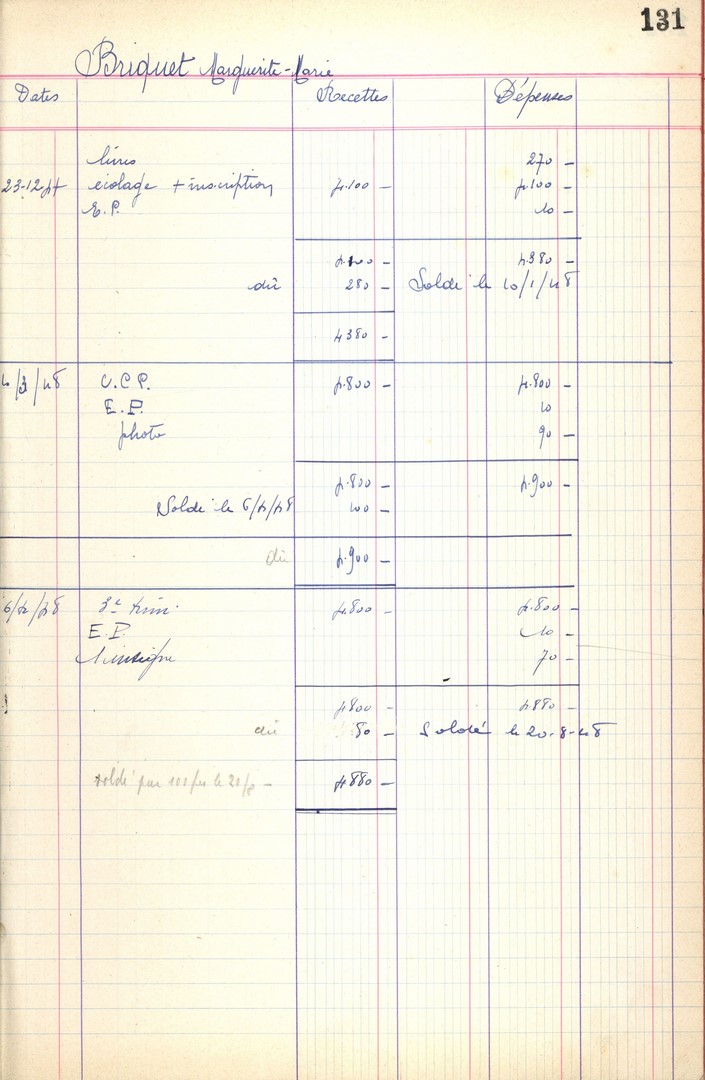 131
Briquet Marguerite-Marie
Dates Recettes Dépenses
livres 270 –
23-12-47 écolage + inscription 4.100 – 4.100 –
E.P. 10 –
4.100 – 4.380 –
dû 280 – Soldé le 10/1/48
4380 –
/3/48 C.C.P. 4.800 – 4.800 –
E.P. 10
photo 90 –
4.800 – 4.900 –
Soldé le 6/4/48 100 –
dû 4.900 –
6/4/48 3e trim. 4.800 – 4.800 –
E.P. 10 –
1 insigne 70 –
4800 – 4.880 –
dû 80 – Soldé le 20-8-48
soldé par le
4.880 –